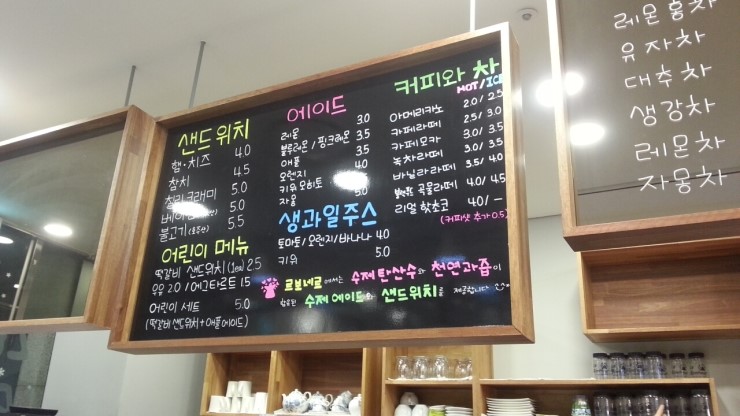 샌드위치
햄·치즈 4.0
참치 4.5
칠리크래미 5.0
5.0
불고기 5.5
어린이 메뉴
떡갈비 샌드위치 2.5
우유 2.0 / 에그타르트 1.5
어린이 세트 5.0
(떡갈비 샌드위치 + 애플에이드)
에이드
레몬 3.0
블루레몬 / 핑크레몬 3.5
애플 3.5
오렌지 4.0
키위 모히또
자몽 5.0
생과일주스
토마토 / 오렌지 / 바나나 4.0
키위 5.0
커피와 차
HOT / ICE
아메리카노 2.0 / 2.5
카페라떼 2.5 / 3.0
카페모카 3.0 / 3.5
녹차라떼 3.0 / 3.5
바닐라라떼 3.5 / 4.0
곡물라떼 4.0 / 4.5
리얼 핫초코 4.0 / —
(커피샷 추가 0.5)
르보네르에서는 수제탄산수와 천연과즙이
함유된 수제 에이드와 샌드위치를 제공합니다
레몬홍차
유자차
대추차
생강차
레몬차
자몽차